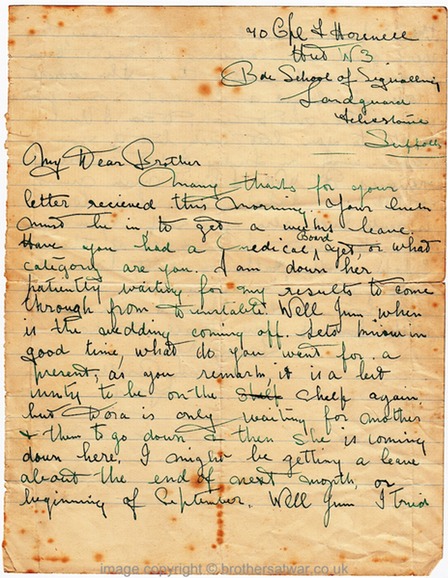 40 Cpl L Horwell
Hut N3
Bde School of Signalling
Landguard
Felixstowe
Suffolk
My Dear Brother
Many thanks for your
letter recieved this morning. Your luck
must be in, to get a weeks leave.
Have you had a medical Board yet, or what
category are you. I am down her
patiently waiting for my results to come
through from Dunstable. Well Jim when
is the wedding coming off. Lets know in
good time, what do you want for a
present, as you remark it is a bit
nusty to be on the shelf again.
but Dora is only waiting for mother
& them to go down & then she is coming
down here. I might be getting a leave
about the end of next month, or
beginning of September. Well Jim I tried
image copyright © brothersatwar.co.uk